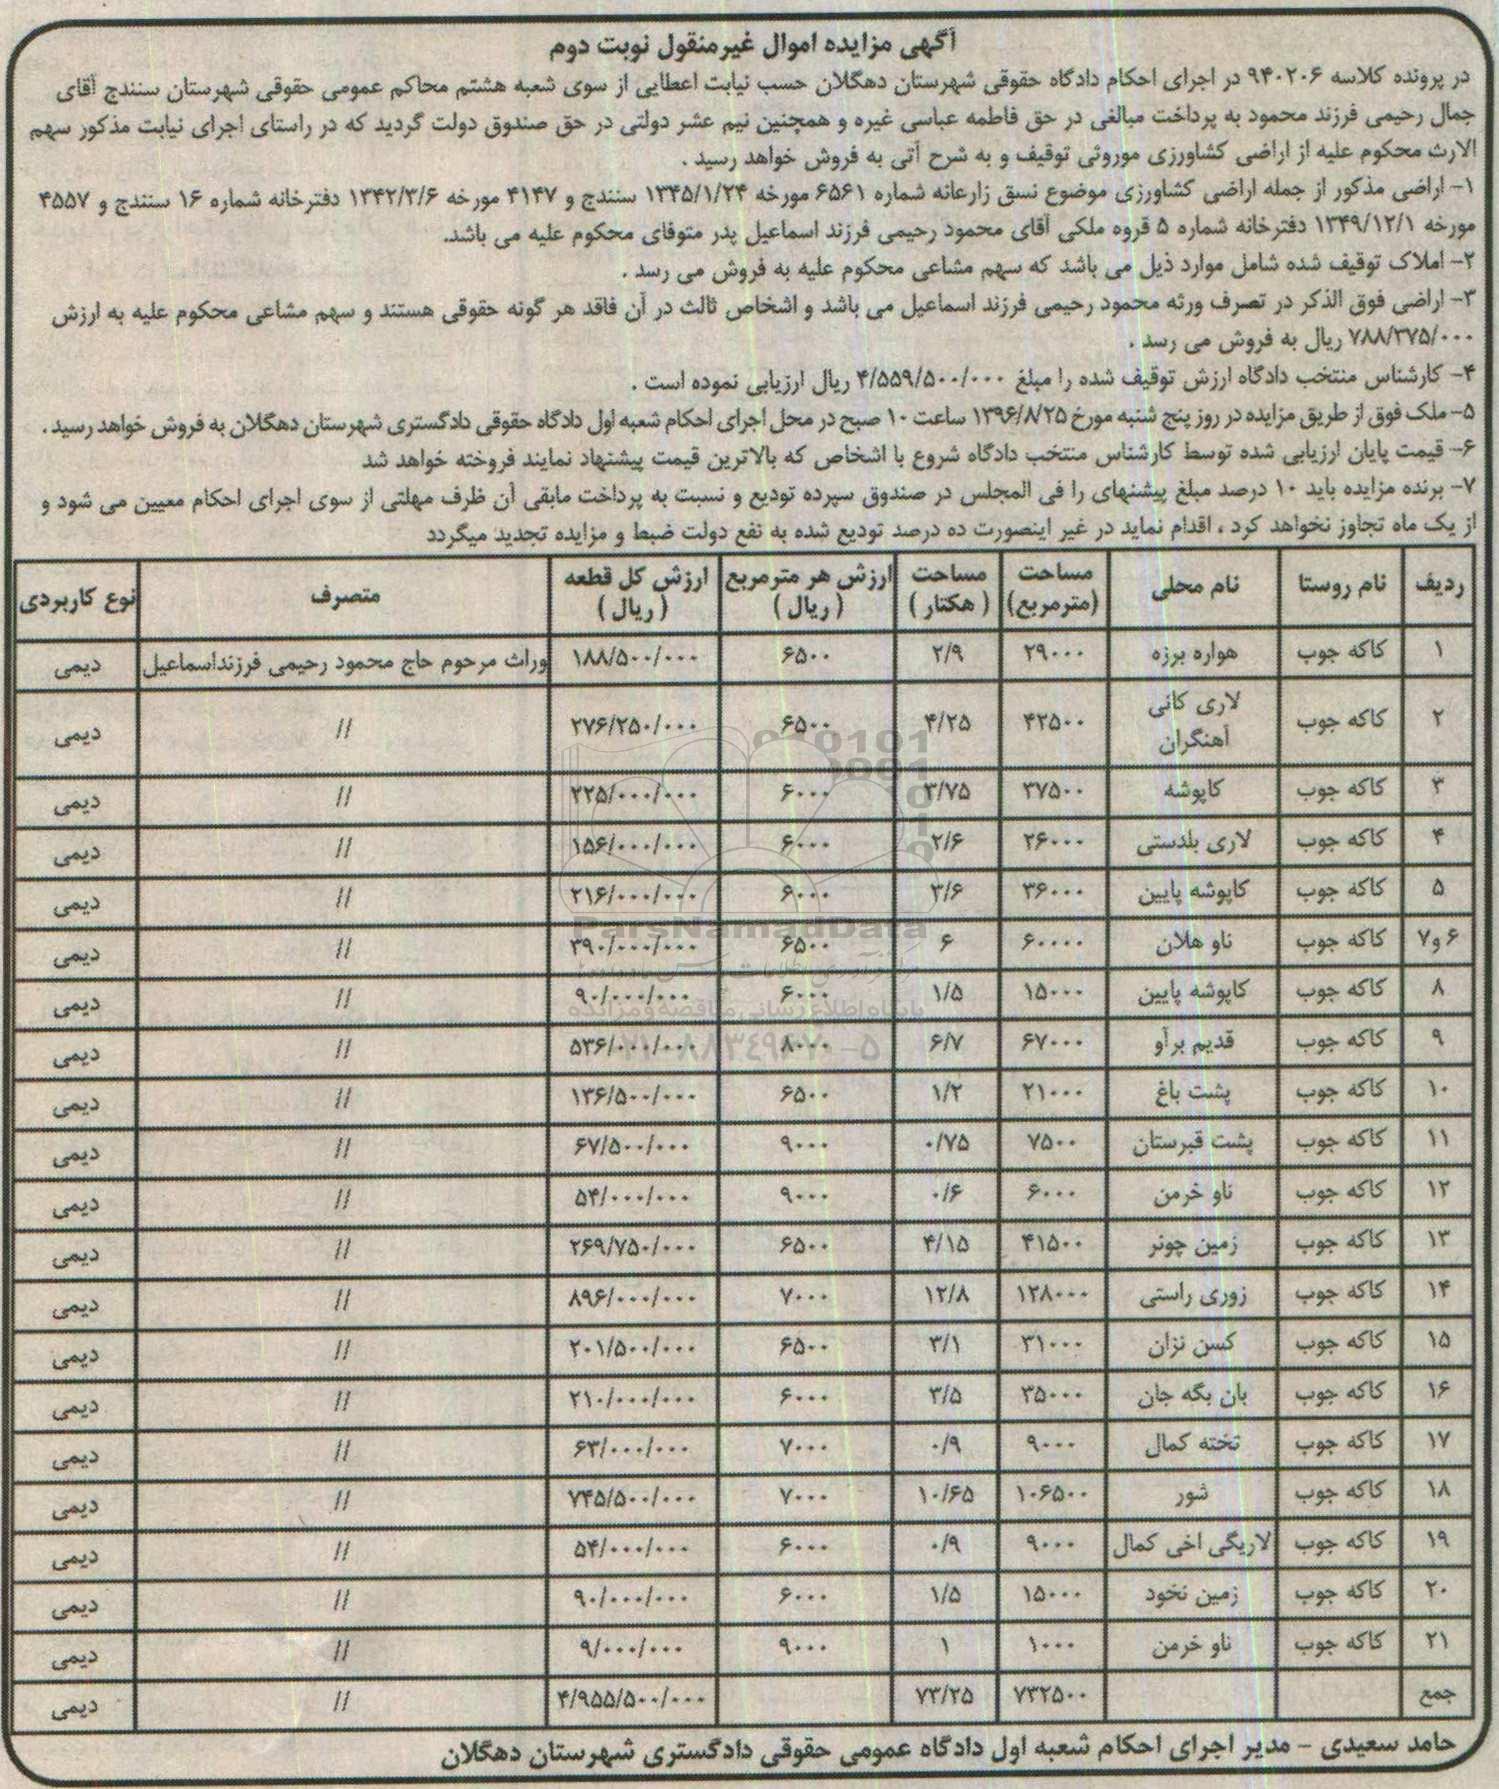 آگهی مزایده اموال غیرمنقول نوبت دوم
در پرونده کلاسه ۹۴۰۲۰۶ در اجرای احکام دادگاه حقوقی شهرستان دهگلان حسب نیابت اعطایی از سوی شعبه هشتم محاکم عمومی حقوقی شهرستان سنندج آقای
جمال رحیمی فرزند محمود به پرداخت مبالغی در حق فاطمه عباسی غیره و همچنین نیم عشر دولتی در حق صندوق دولت گردید که در راستای اجرای نیابت مذکور سهم
الارث محکوم علیه از اراضی کشاورزی موروثی توقیف و به شرح آتی به فروش خواهد رسید .
۱- اراضی مذکور از جمله اراضی کشاورزی موضوع نسق زارعانه شماره ۶۵۶۱ مورخه ۱۳۴۵/۱/۲۴ سنندج و ۴۱۴۷ مورخه ۱۳۴۲/۳/۶ دفترخانه شماره ۱۶ سنندج و ۴۵۵۷
مورخه ۱۳۴۹/۱۲/۱ دفترخانه شماره ۵ قروه ملکی آقای محمود رحیمی فرزند اسماعیل پدر متوفای محکوم علیه می باشد.
۲- املاک توقیف شده شامل موارد ذیل می باشد که سهم مشاعی محکوم علیه به فروش می رسد .
۳- اراضی فوق الذکر در تصرف ورثه محمود رحیمی فرزند اسماعیل می باشد و اشخاص ثالث در آن فاقد هر گونه حقوقی هستند و سهم مشاعی محکوم علیه به ارزش
۷۸۸/۳۷۵/۰۰۰ ریال به فروش می رسد .
۴- کارشناس منتخب دادگاه ارزش توقیف شده را مبلغ ۴/۵۵۹/۵۰۰/۰۰۰ ریال ارزیابی نموده است .
۵- ملک فوق از طریق مزایده در روز پنج شنبه مورخ ۱۳۹۶/۸/۲۵ ساعت ۱۰ صبح در محل اجرای احکام شعبه اول دادگاه حقوقی دادگستری شهرستان دهگلان به فروش خواهد رسید .
۶- قیمت پایان ارزیابی شده توسط کارشناس منتخب دادگاه شروع با اشخاص که بالاترین قیمت پیشنهاد نمایند فروخته خواهد شد
۷- برنده مزایده باید ۱۰ درصد مبلغ پیشنهای را فی المجلس در صندوق سپرده تودیع و نسبت به پرداخت مابقی آن ظرف مهلتی از سوی اجرای احکام معیین می شود و
از یک ماه تجاوز نخواهد کرد ، اقدام نماید در غیر اینصورت ده درصد تودیع شده به نفع دولت ضبط و مزایده تجدید میگردد
ردیف نام روستا نام محلی مساحت (مترمربع) مساحت (هکتار) ارزش هر مترمربع (ریال) ارزش کل قطعه (ریال) متصرف نوع کاربردی
۱ کاکه جوب هواره برزه ۲۹۰۰۰ ۲/۹ ۶۵۰۰ ۱۸۸/۵۰۰/۰۰۰ وراث مرحوم حاج محمود رحیمی فرزنداسماعیل دیمی
۲ کاکه جوب لاری کانی آهنگران ۴۲۵۰۰ ۴/۲۵ ۶۵۰۰ ۲۷۶/۲۵۰/۰۰۰ // دیمی
۳ کاکه جوب کاپوشه ۳۷۵۰۰ ۳/۷۵ ۶۰۰۰ ۲۲۵/۰۰۰/۰۰۰ // دیمی
۴ کاکه جوب لاری بلدستی ۲۶۰۰۰ ۲/۶ ۶۰۰۰ ۱۵۶/۰۰۰/۰۰۰ // دیمی
۵ کاکه جوب کاپوشه پایین ۳۶۰۰۰ ۳/۶ ۶۰۰۰ ۲۱۶/۰۰۰/۰۰۰ // دیمی
۶ و۷ کاکه جوب ناو هلان ۶۰۰۰۰ ۶ ۶۵۰۰ ۳۹۰/۰۰۰/۰۰۰ // دیمی
۸ کاکه جوب کاپوشه پایین ۱۵۰۰۰ ۱/۵ ۶۰۰۰ ۹۰/۰۰۰/۰۰۰ // دیمی
۹ کاکه جوب قدیم برآو ۶۷۰۰۰ ۶/۷ ۸۰۰۰ ۵۳۶/۰۰۰/۰۰۰ // دیمی
۱۰ کاکه جوب پشت باغ ۲۱۰۰۰ ۱/۲ ۶۵۰۰ ۱۳۶/۵۰۰/۰۰۰ // دیمی
۱۱ کاکه جوب پشت قبرستان ۷۵۰۰ ۰/۷۵ ۹۰۰۰ ۶۷/۵۰۰/۰۰۰ // دیمی
۱۲ کاکه جوب ناو خرمن ۶۰۰۰ ۰/۶ ۹۰۰۰ ۵۴/۰۰۰/۰۰۰ // دیمی
۱۳ کاکه جوب زمین چونر ۴۱۵۰۰ ۴/۱۵ ۶۵۰۰ ۲۶۹/۷۵۰/۰۰۰ // دیمی
۱۴ کاکه جوب زوری راستی ۱۲۸۰۰۰ ۱۲/۸ ۷۰۰۰ ۸۹۶/۰۰۰/۰۰۰ // دیمی
۱۵ کاکه جوب کسن نزان ۳۱۰۰۰ ۳/۱ ۶۵۰۰ ۲۰۱/۵۰۰/۰۰۰ // دیمی
۱۶ کاکه جوب بان بگه جان ۳۵۰۰۰ ۳/۵ ۶۰۰۰ ۲۱۰/۰۰۰/۰۰۰ // دیمی
۱۷ کاکه جوب تخته کمال ۹۰۰۰ ۰/۹ ۷۰۰۰ ۶۳/۰۰۰/۰۰۰ // دیمی
۱۸ کاکه جوب شور ۱۰۶۵۰۰ ۱۰/۶۵ ۷۰۰۰ ۷۴۵/۵۰۰/۰۰۰ // دیمی
۱۹ کاکه جوب لاریگی اخی کمال ۹۰۰۰ ۰/۹ ۶۰۰۰ ۵۴/۰۰۰/۰۰۰ // دیمی
۲۰ کاکه جوب زمین نخود ۱۵۰۰۰ ۱/۵ ۶۰۰۰ ۹۰/۰۰۰/۰۰۰ // دیمی
۲۱ کاکه جوب ناو خرمن ۱۰۰۰ ۱ ۹۰۰۰ ۹/۰۰۰/۰۰۰ // دیمی
جمع ۷۳۲۵۰۰ ۷۳/۲۵ ۴/۹۵۵/۵۰۰/۰۰۰ // دیمی
حامد سعیدی - مدیر اجرای احکام شعبه اول دادگاه عمومی حقوقی دادگستری شهرستان دهگلان
ParsNamadData
پایگاه اطلاع رسانی مناقصه و مزایده